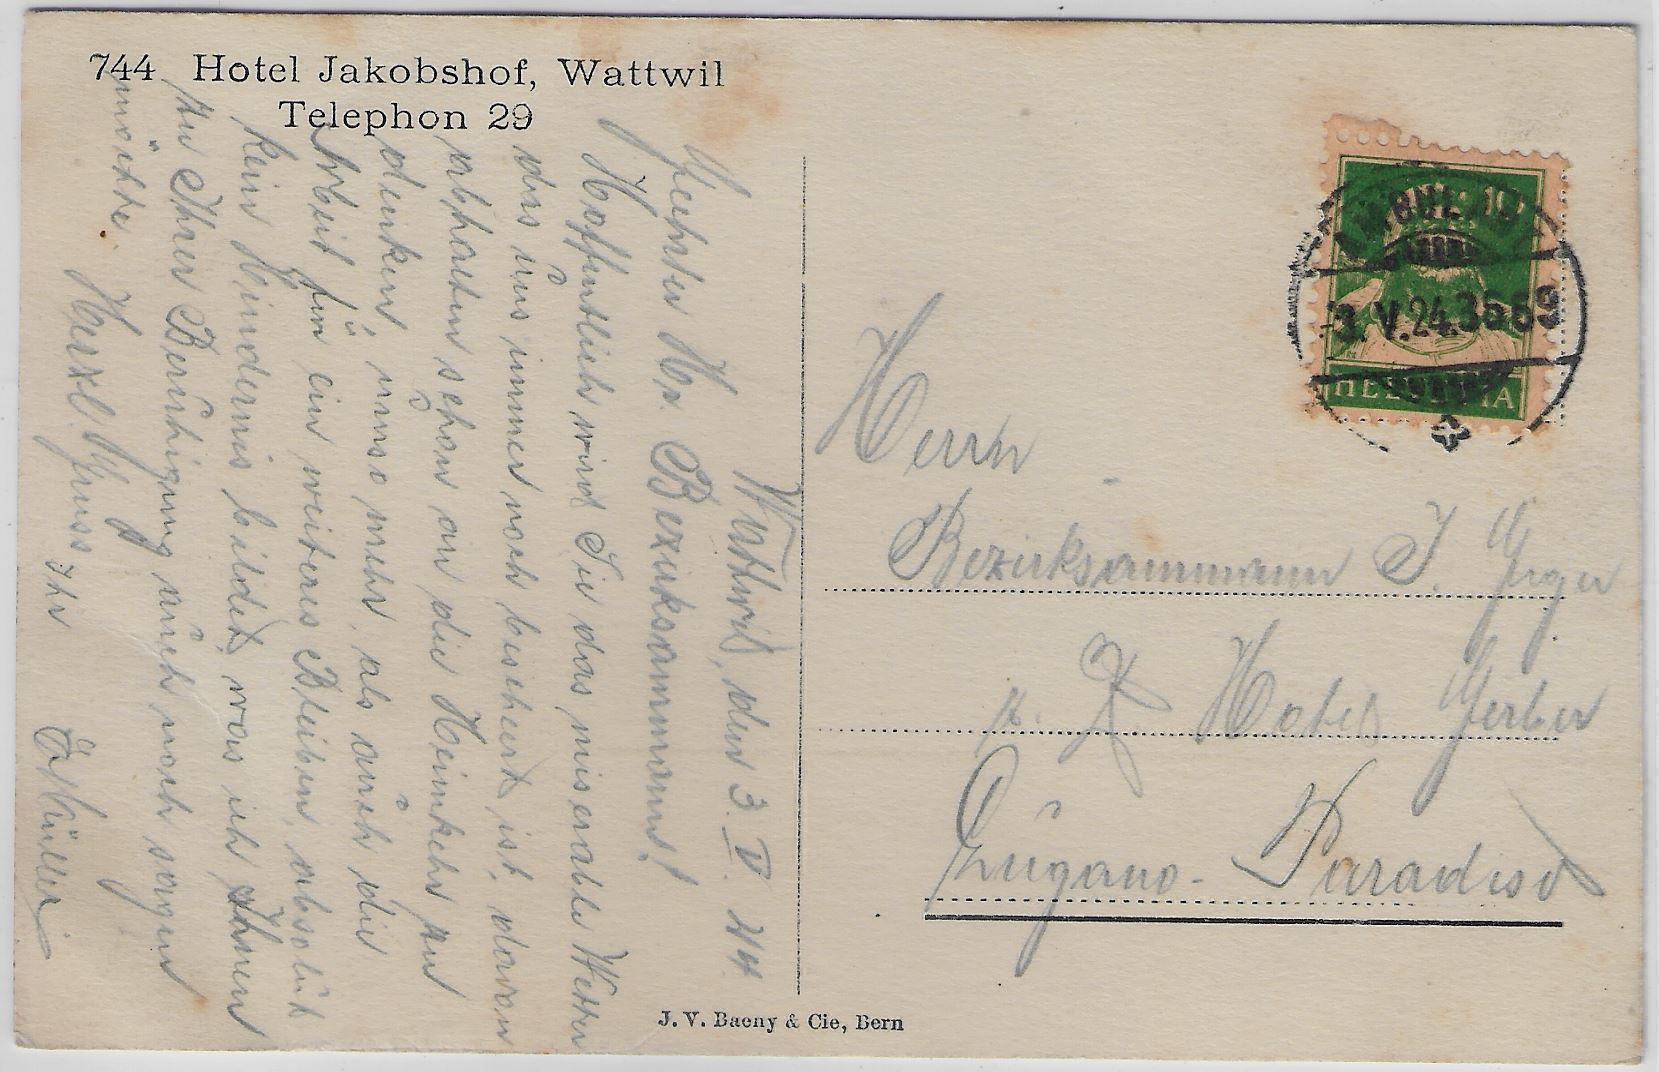 744 Hotel Jakobshof, Wattwil
Telephon 29
Wattwil, den 3. V. 24.
Geehrter Hr. Bezirksammann!
Hoffentlich wird Sie das miserable Wetter
das uns immer noch beschert ist, davon
abhalten schon an die Heimkehr zu
denken, umso mehr, als auch die
Arbeit für ein weiteres Bleiben, absolut
kein Hindernis bildet, was ich Ihnen
zu Ihrer Beruhigung auch noch sagen
möchte.
Herzl. Gruss Ihr
Müller
Herrn
Bezirksammann J.
p. Z. Hotel Gerber
Lugano-Paradiso
10
-3.V.24.3569
HELVETIA
J. V. Baeny & Cie, Bern